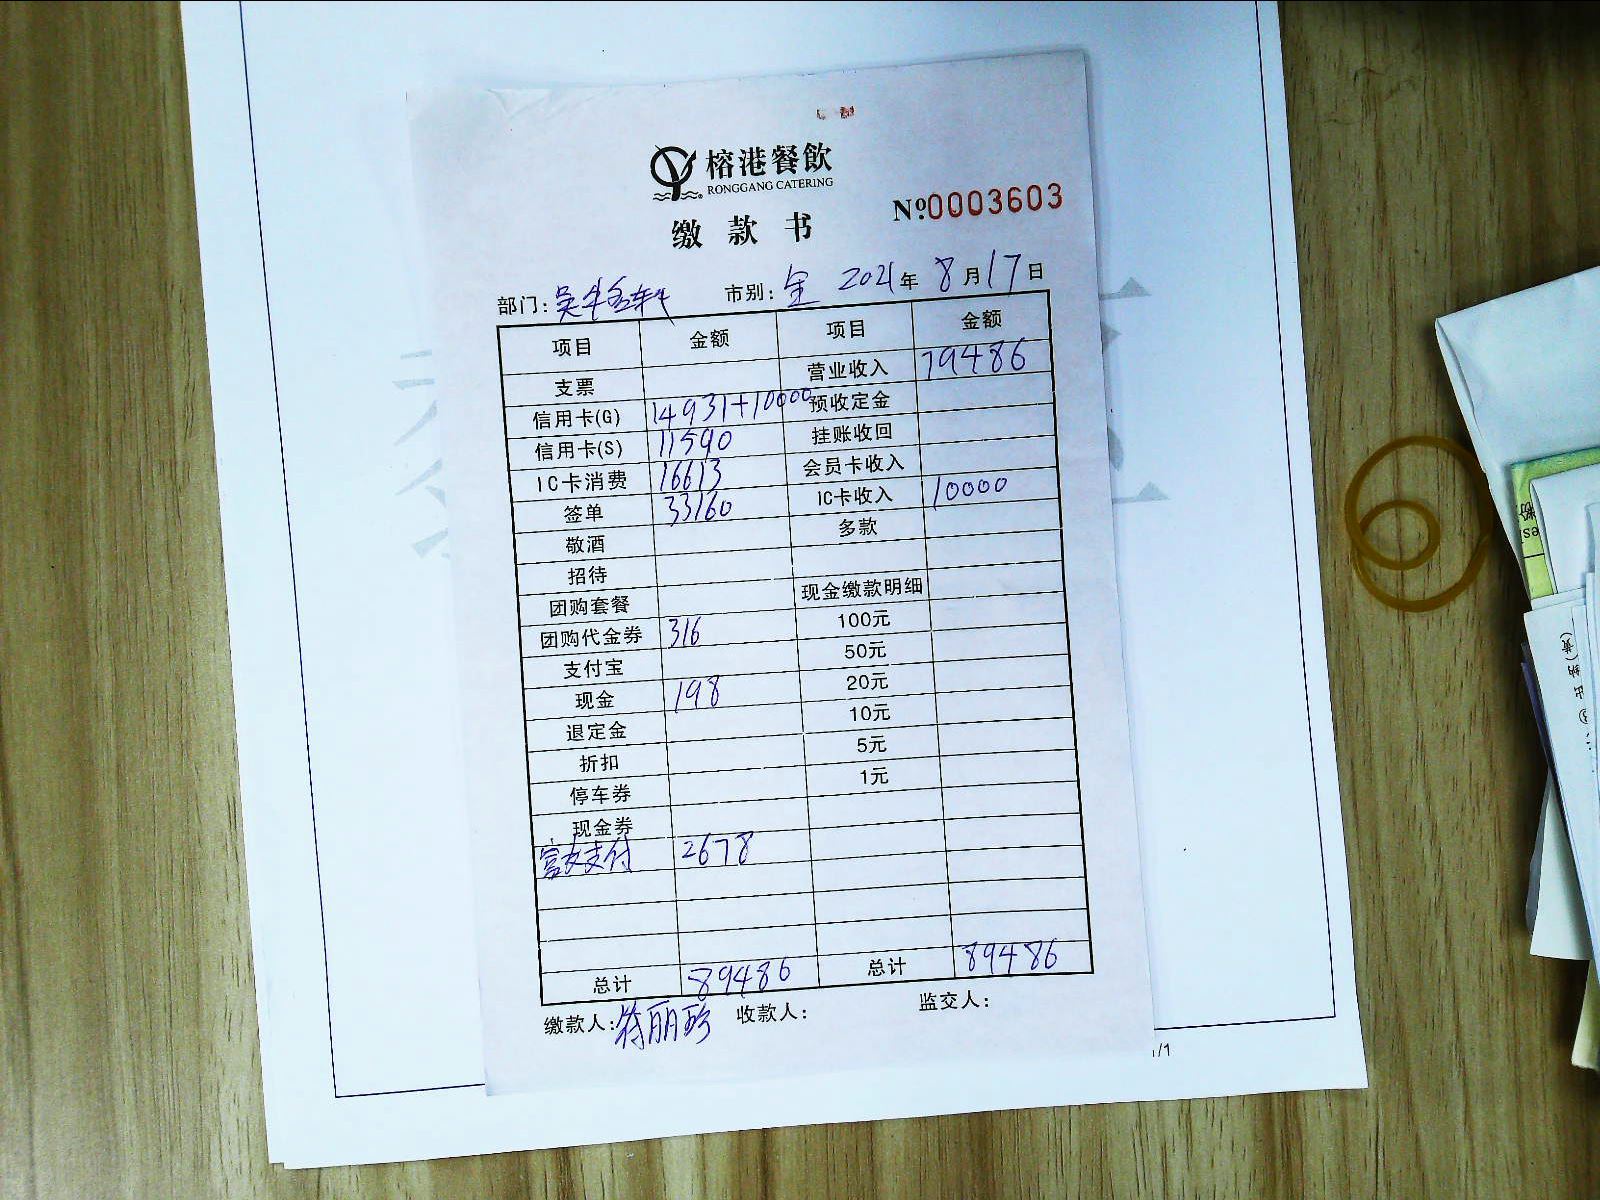 榕港餐飲
RONGGANG CATERING
缴款书
№0003603
部门: 市别: 全 2021年 8月17日
项目 金额 项目 金额
支票 营业收入 79486
信用卡(G) 14931+10000 预收定金
信用卡(S) 11590 挂账收回
IC卡消费 16613 会员卡收入
签单 33160 IC卡收入 10000
敬酒 多款
招待
团购套餐 现金缴款明细
团购代金券 316 100元
支付宝 50元
现金 198 20元
退定金 10元
折扣 5元
停车券 1元
现金券
支付 2678
总计 89486 总计 89486
缴款人: 丽珍 收款人: 监交人:
1/1